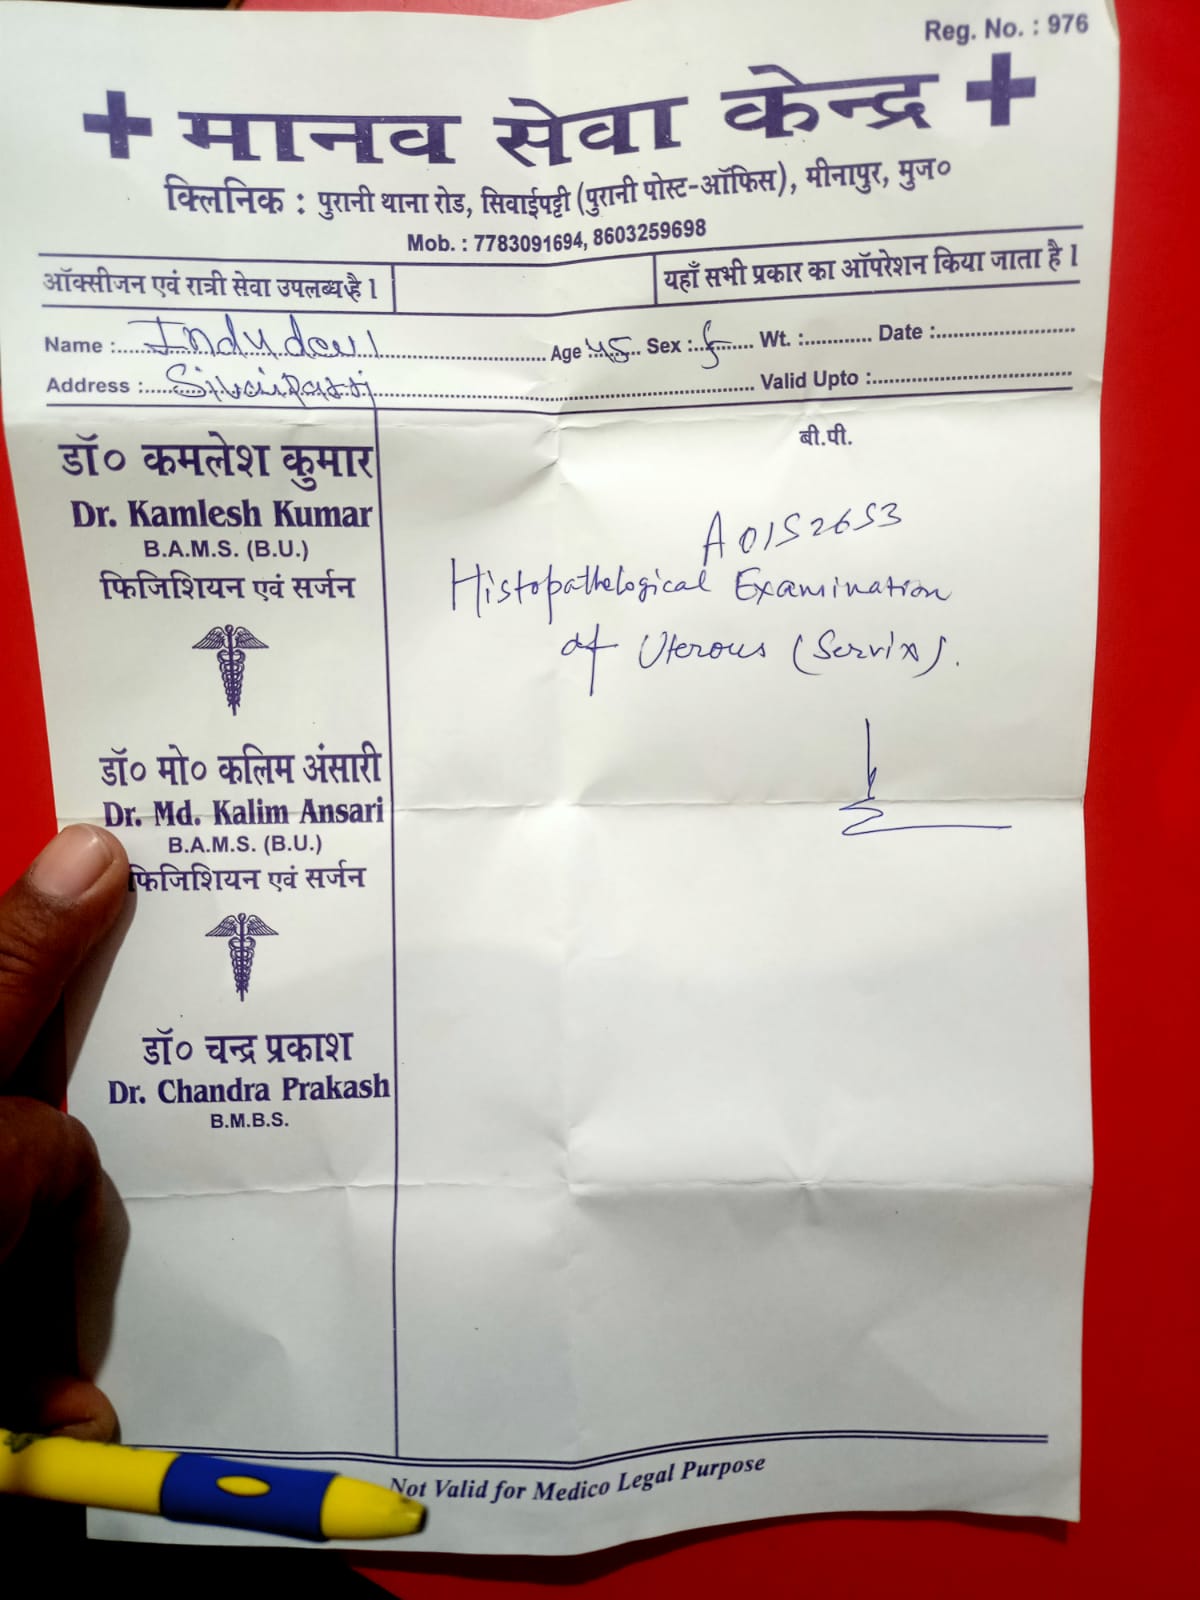 Reg. No. : 976
मानव सेवा केन्द्र
क्लिनिक : पुरानी थाना रोड, सिवाईपट्टी (पुरानी पोस्ट-ऑफिस), मीनापुर, मुज०
Mob. : 7783091694, 8603259698
ऑक्सीजन एवं रात्री सेवा उपलब्ध है ।
यहाँ सभी प्रकार का ऑपरेशन किया जाता है ।
Name : Indu devi Age 45 Sex : f Wt. : Date :
Address : Siwaipatti Valid Upto :
बी.पी.
डॉ० कमलेश कुमार
Dr. Kamlesh Kumar
B.A.M.S. (B.U.)
फिजिशियन एवं सर्जन
A0152653
Histopathelogical Examination
of Uterous (Servix).
डॉ० मो० कलिम अंसारी
Dr. Md. Kalim Ansari
B.A.M.S. (B.U.)
फिजिशियन एवं सर्जन
डॉ० चन्द्र प्रकाश
Dr. Chandra Prakash
B.M.B.S.
Not Valid for Medico Legal Purpose